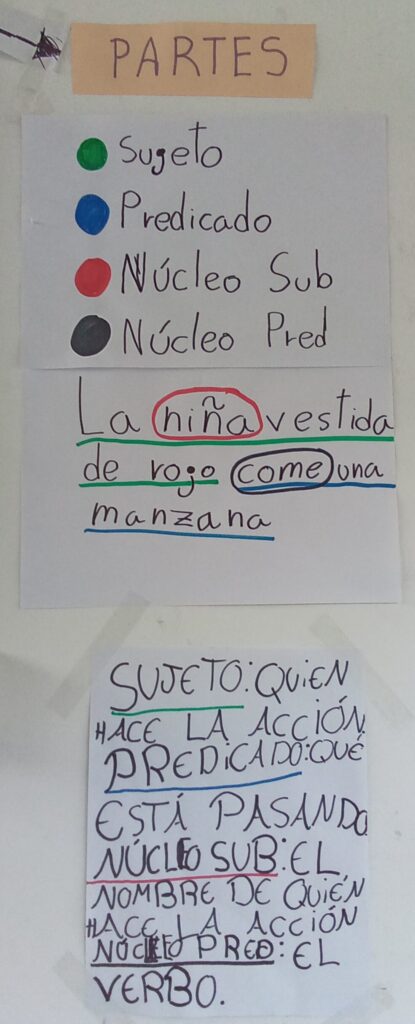 PARTES
Sujeto
Predicado
Núcleo Sub
Núcleo Pred
La niña vestida
de rojo come una
manzana
SUJETO: QUIEN
HACE LA ACCIÓN
PREDICADO: QUÉ
ESTÁ PASANDO
NÚCLEO SUB: EL
NOMBRE DE QUIÉN
HACE LA ACCIÓN
NÚCLEO PRED: EL
VERBO.